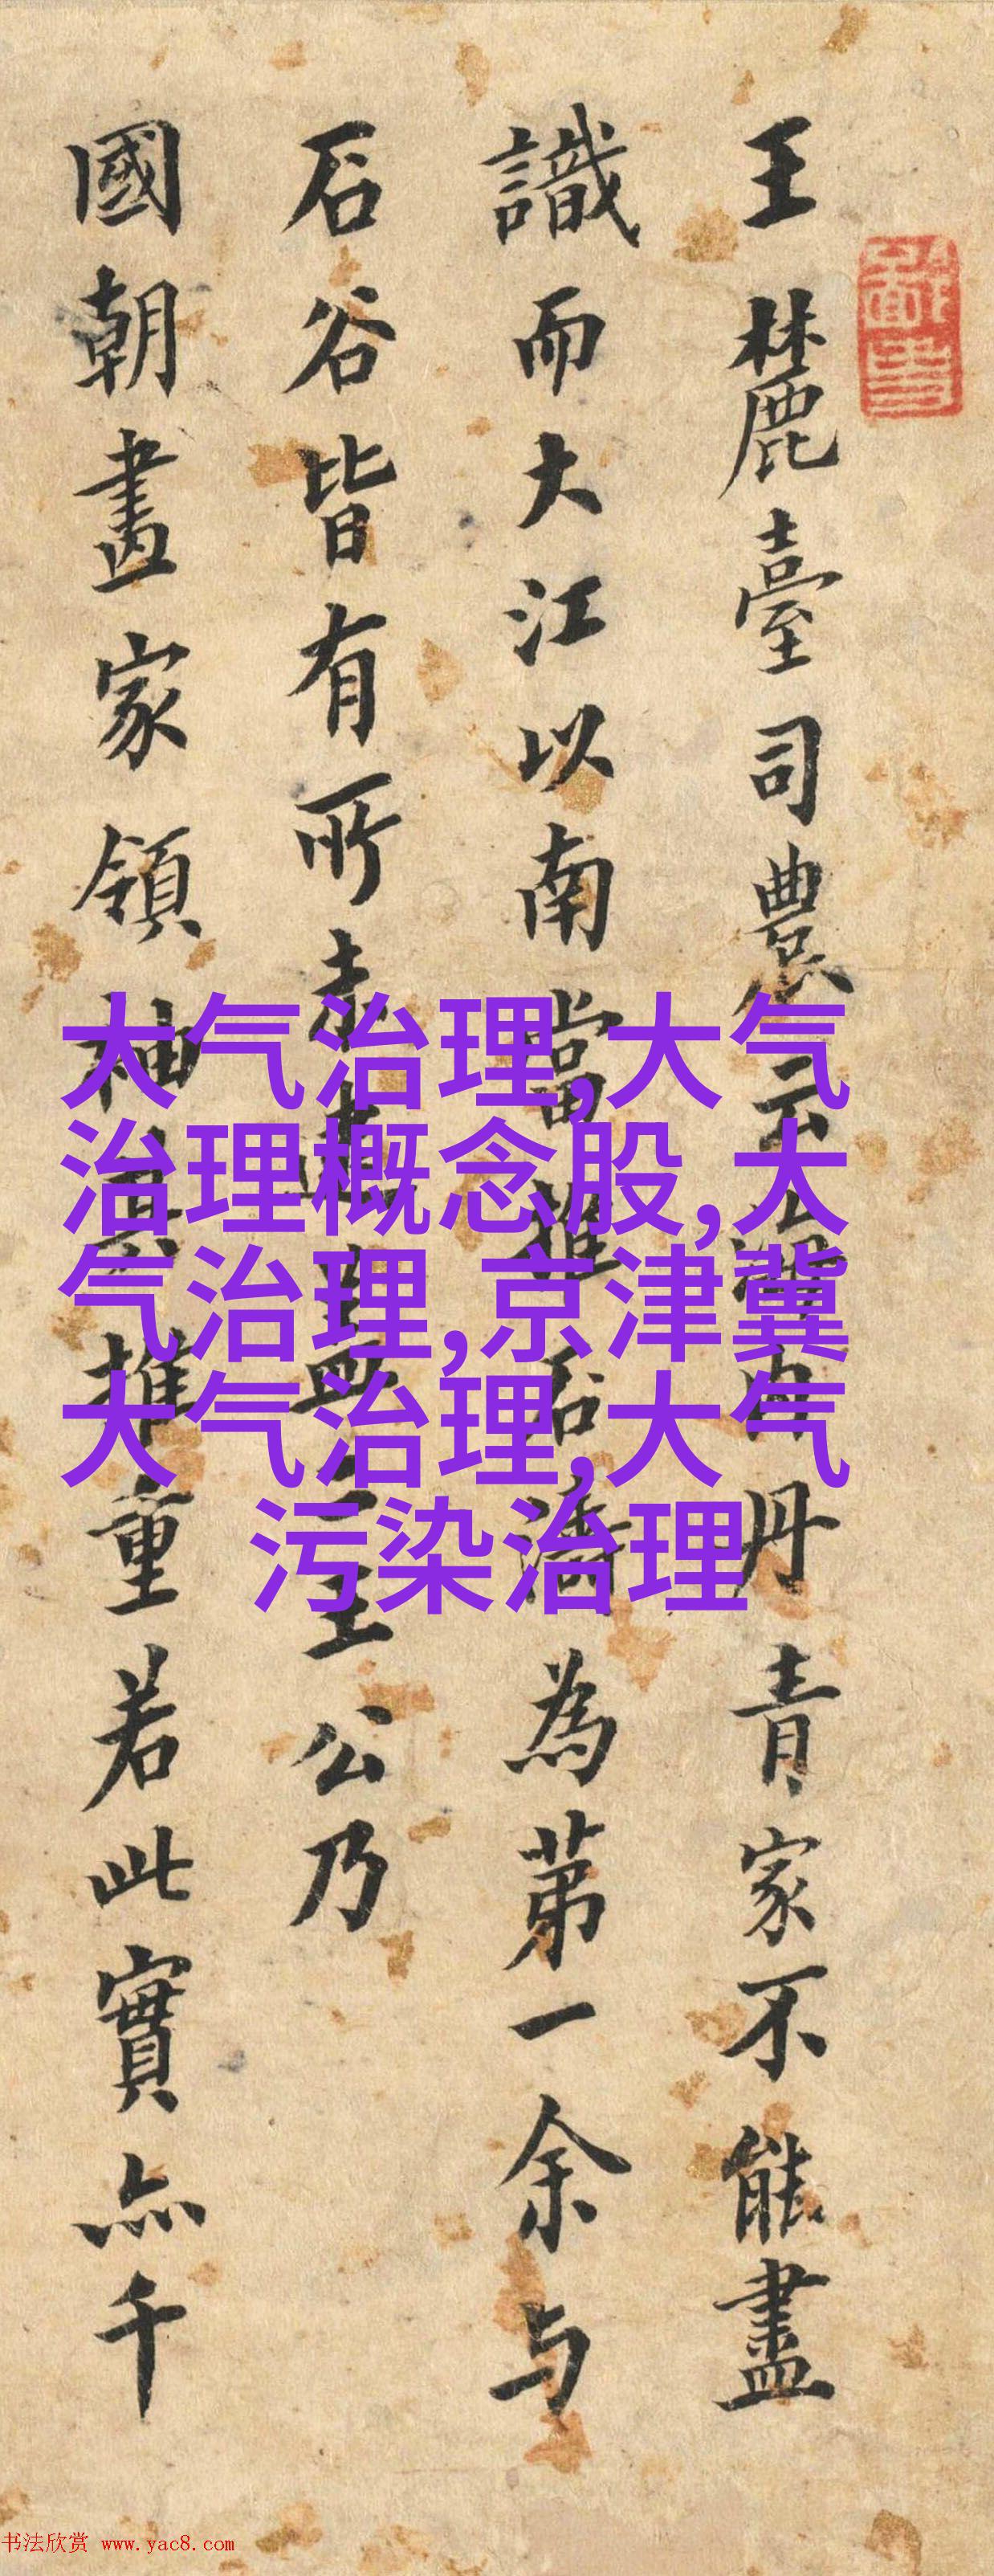 王麓臺司農云海內丹青家不能盡
識而大江以南當推石濤為第一余与
石谷皆有所未逮盖二王公乃
國朝畫家領袖其推重若此實亦千
大气治理,大气
治理概念股,大
气治理,京津冀
大气治理,大气
污染治理
书法欣赏 www.yac8.com